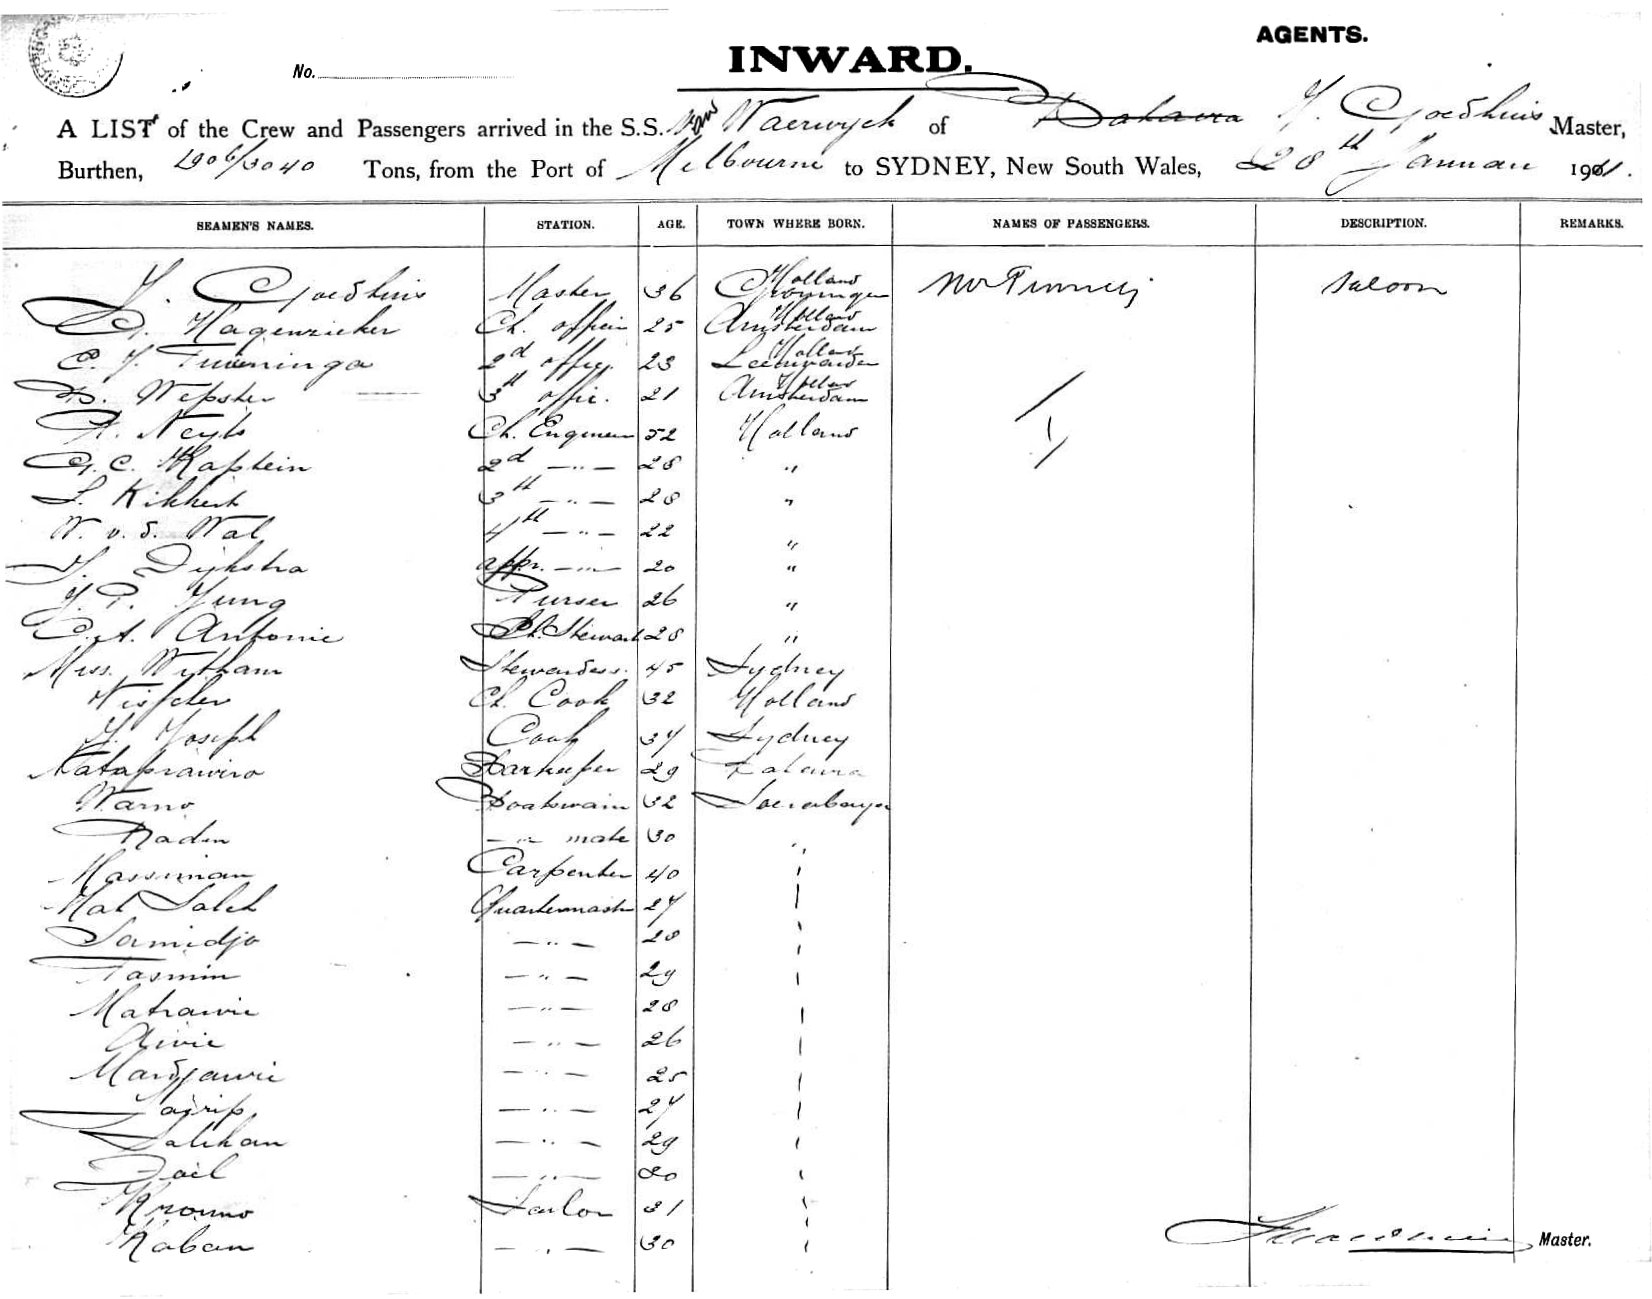 AGENTS.
INWARD.
No.
A LIST of the Crew and Passengers arrived in the S.S. Van Waerwyck of Batavia Y. Goedhuis Master,
Burthen, 1906/3040 Tons, from the Port of Melbourne to SYDNEY, New South Wales, 28th Januari 1911.
SEAMEN'S NAMES. STATION. AGE. TOWN WHERE BORN. NAMES OF PASSENGERS. DESCRIPTION. REMARKS.
Y. Goedhuis Master 36 Groningen Holland Saloon
G. Hagenzieker Ch. officer 25 Amsterdam Holland
C. Y. Tuininga 2d offic. 23 Leeuwarden Holland
Wepster 3th offic. 21 Amsterdam Holland
A. Neyts Ch. Engineer 52 Holland
G. C. Kaptein 2d —"— 28 "
L. Kikkert 3th —"— 28 "
W. v. d. Wal 4th —"— 22 "
Dijkstra appr. —"— 20 "
Y. P. Yung Purser 26 "
C. A. Antonie Ch. Steward 28 "
Mrs. Witham Stewardess. 45 Sydney
Visscher Ch. Cook 32 Holland
Y. Joseph Cook 34 Sydney
Nataprawiro Barkeeper 29 Batavia
Warno Boatswain 32 Soerabaya
Raden —"— mate 30 "
Massiman Carpenter 40
Mat Saleh Quartermaster 27
Samidjo —"— 28
Tasmin —"— 29
Matrawie —"— 28
Aivie —"— 26
Mardjawie —"— 25
Sarip —"— 27
Salihan —"— 29
—"— 30
Kromo Sailor 31
Kaban —"— 30
Master.